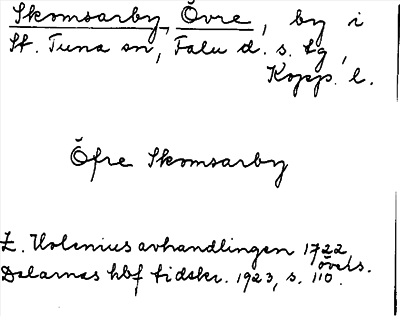 Skomsarby, Övre, by i
St. Tuna sn, Falu d. s. tg,
Kopp. l.
Öfre Skomsarby
Z. Holenius avhandlingen 1722
övers.
Dalarnas hbf tidskr. 1923, s. 110.